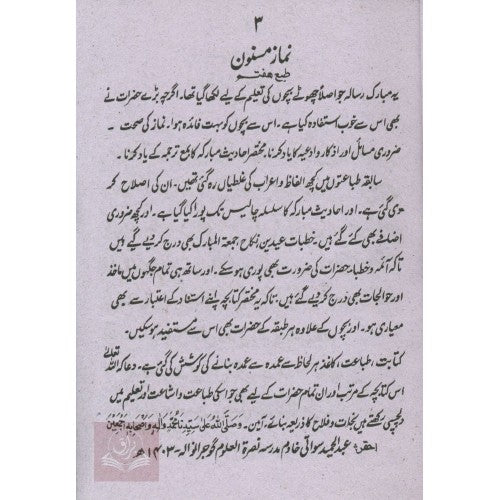 ۳
نماز مسنون
طبع هفتم
یہ مبارک رسالہ جو اصلاً چھوٹے بچوں کی تعلیم کے لیے لکھا گیا تھا۔ اگرچہ بڑے حضرات نے
بھی اس سے خوب استفادہ کیا ہے۔ اس سے بچوں کو بہت فائدہ ہوا۔ نماز کی صحت ۔
ضروری مسائل اور اذکار و ادعیہ کا یاد کرنا، مختصر احادیث مبارکہ کا بمع ترجمہ کے یاد کرنا۔
سابقہ طباعتوں میں کچھ الفاظ و اعراب کی غلطیاں رہ گئی تھیں۔ ان کی اصلاح کر
دی گئی ہے۔ اور احادیث مبارکہ کا سلسلہ چالیس تک پورا کیا گیا ہے۔ اور کچھ ضروری
اضافے بھی کئے گئے ہیں۔ خطبات عیدین نکاح جمعۃ المبارک بھی درج کر دیے گئے ہیں
تاکہ آئمہ و خطباء حضرات کی ضرورت بھی پوری ہو سکے۔ اور ساتھ ہی تمام جگہوں میں ماخذ
اور حوالجات بھی درج کر دیے گئے ہیں۔ تاکہ یہ مختصر کتابچہ اپنے استناد کے اعتبار سے بھی
معیاری ہو۔ اور بچوں کے علاوہ ہر طبقہ کے حضرات بھی اس سے مستفید ہو سکیں۔
کتابت، طباعت، کاغذ ہر لحاظ سے عمدہ سے عمدہ بنانے کی کوشش کی گئی ہے۔ دعا کہ اللہ تعالیٰ
اس کتابچہ کے مرتب اور ان تمام حضرات کے لیے بھی جو اسکی طباعت و اشاعت اور تعلیم میں
دلچسپی رکھتے ہیں نجات و فلاح کا ذریعہ بنائے۔ آمین۔ وَصَلَّى اللهُ عَلٰى سَيِّدِنَا مُحَمَّدٍ وَّاٰلِهٖ وَاَصْحَابِهٖ اَجْمَعِيْنَ
احقر: عبد الحمید سواتی خادم مدرسہ نصرۃ العلوم گوجرانوالہ ۔ ۱۴۰۳ھ